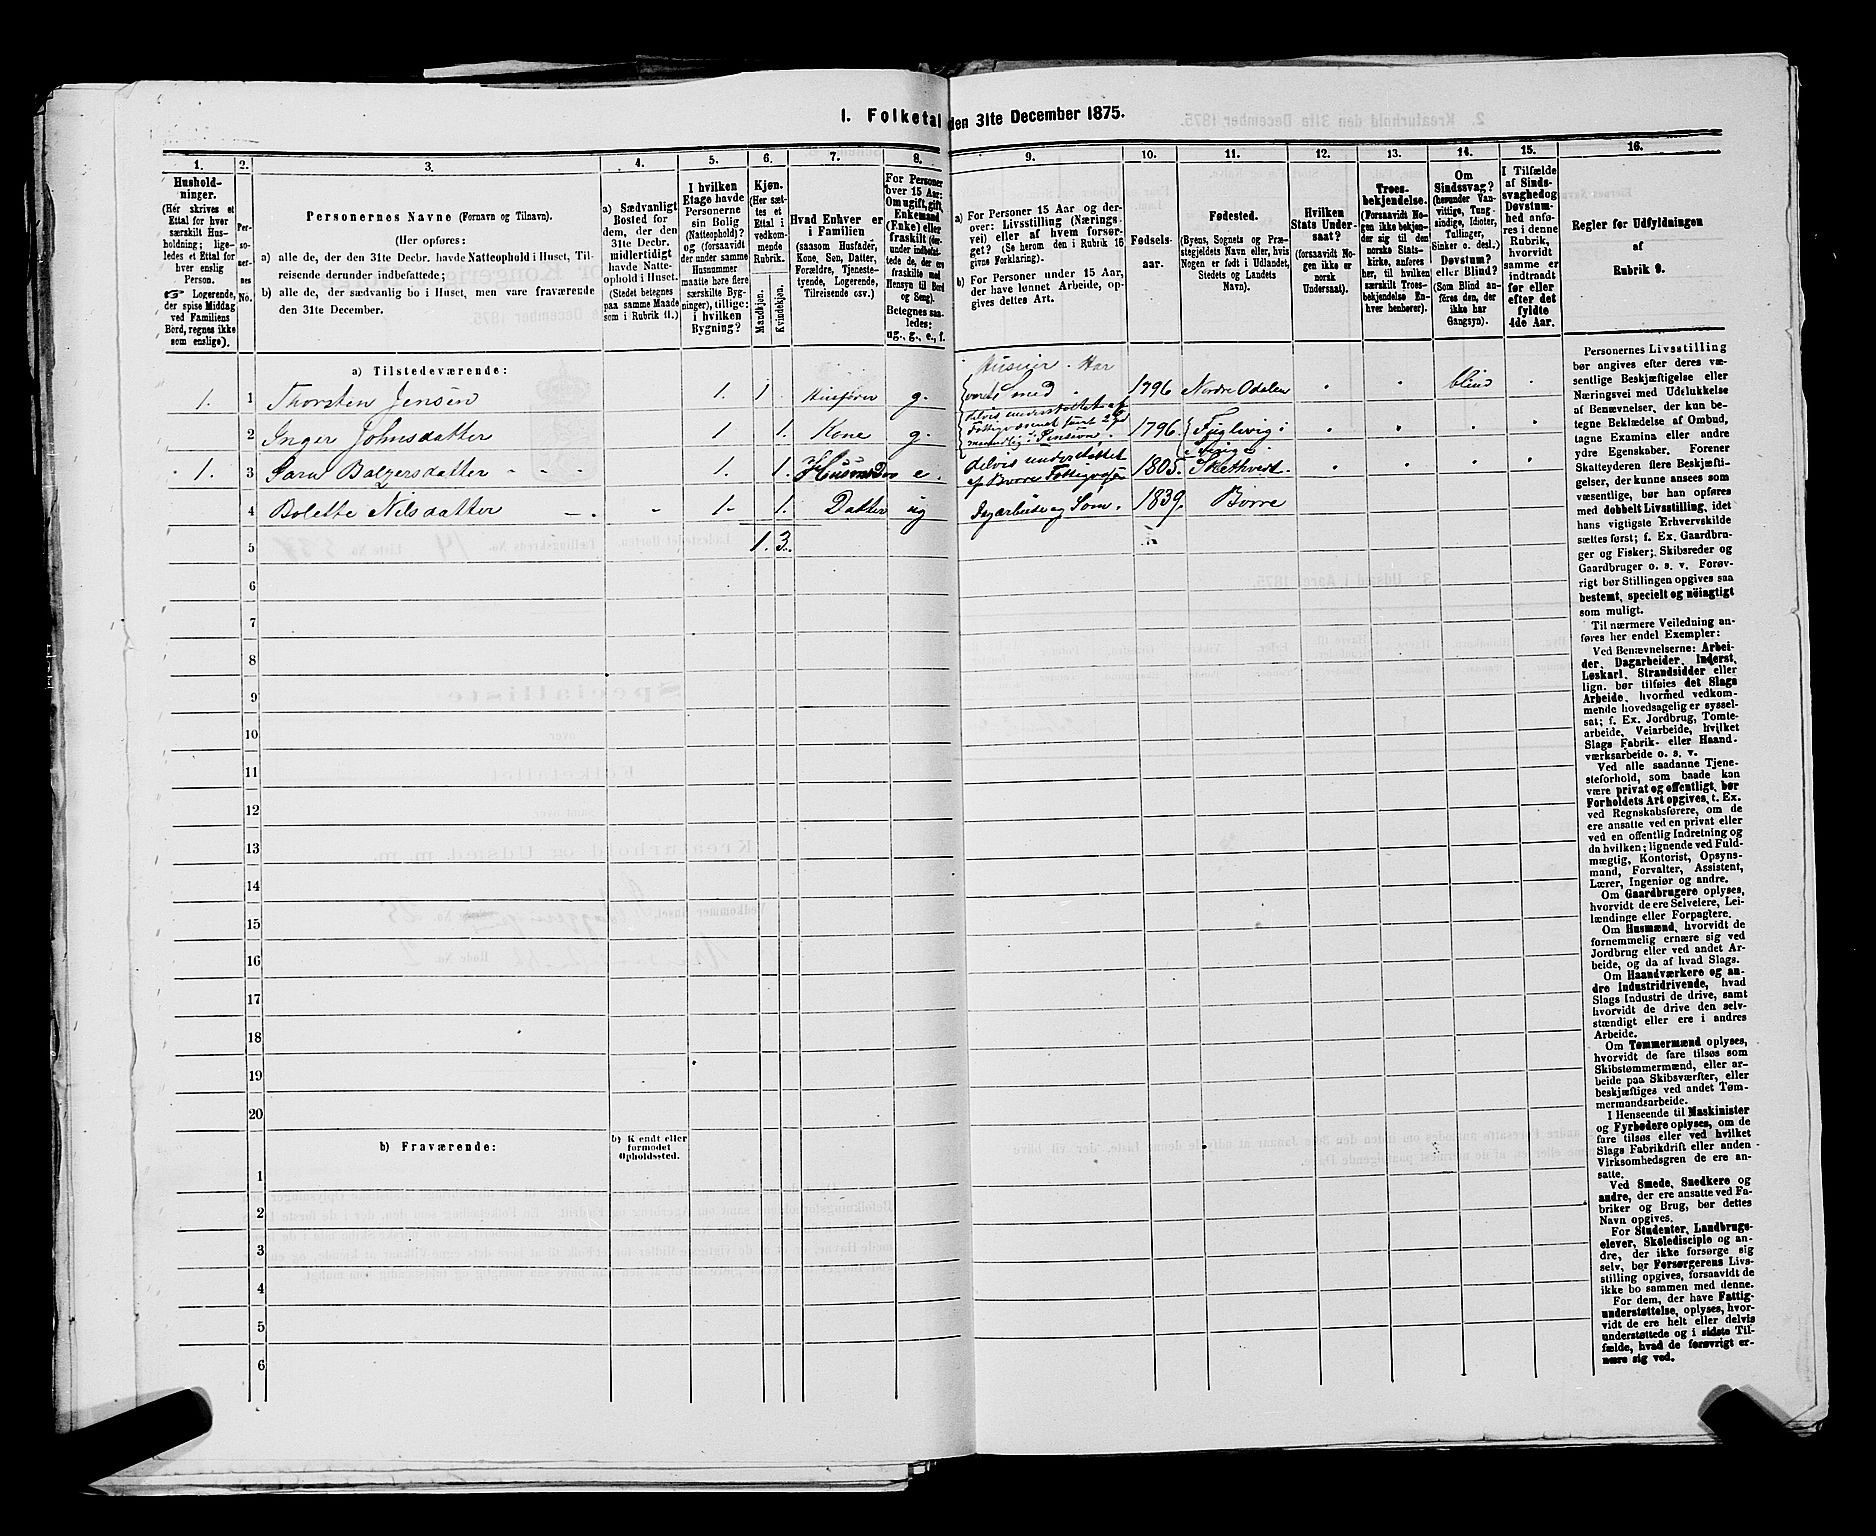 1. Folketal den 31te December 1875.
1. 2. 3. 4. 5. 6. 7. 8. 9. 10. 11. 12. 13. 14. 15. 16.
Hushold-
ninger.
(Her skrives et
Ettal for hver
særskilt Hus-
holdning; lige-
ledes et Ettal for
hver enslig
Person.
☞ Logerende,
der spise Middag
ved Familiens
Bord, regnes ikke
som enslige).
Per-
so-
ner-
nes
No.
Personernes Navne (Fornavn og Tilnavn).
(Her opføres:
a) alle de, der den 31te Decbr. havde Natteophold i Huset, Til-
reisende derunder indbefattede;
b) alle de, der sædvanlig bo i Huset, men vare fraværende
den 31te December.
a) Sædvanligt
Bosted for
dem, der den
31te Decbr.
midlertidigt
havde Natte-
ophold i Huset.
(Stedet betegnes
paa samme Maade
som i Rubrik 11.)
I hvilken
Etage havde
Personerne
sin Bolig
(Natteophold)?
og (forsaavidt
der under samme
Husnummer
maatte høre flere
særskilte Byg-
ninger), tillige:
i hvilken
Bygning?
Kjøn.
(Her sæt-
tes et
Ettal i
vedkom-
mende
Rubrik.
Mandkjøn.
Kvindekjøn.
Hvad Enhver er
i Familien
(saasom Husfader,
Kone, Søn, Datter,
Forældre, Tjeneste-
tyende, Logerende,
Tilreisende osv.)
For Personer
over 15 Aar:
Om ugift, gift,
Enkemand
(Enke) eller
fraskilt (der-
under indbefat-
tede de, der ere
fraskilte med
Hensyn til Bord
og Seng).
Betegnes saa-
ledes:
ug., g., e., f.
a) For Personer 15 Aar og der-
over: Livsstilling (Nærings-
vei) eller af hvem forsør-
get? (Se herom den i Rubrik 16
givne Forklaring).
b) For Personer under 15 Aar,
der have lønnet Arbeide, op-
gives dettes Art.
Fødsels-
aar.
Fødested.
(Byens, Sognets og Præ-
stegjeldets Navn eller, hvis
Nogen er født i Udlandet,
Stedets og Landets
Navn).
Hvilken
Stats Under-
saat?
(forsaavidt No-
gen ikke er
norsk
Undersaat).
Troes-
bekjendelse.
(Forsaavidt No-
gen ikke bekjen-
der sig til den
norske Stats-
kirke, anføres
her, til hvilken
særskilt Troes-
bekjendelse En-
hver henhører).
Om
Sindssvag?
(herunder Van-
vittige, Tung-
sindige, Idioter,
Tullinger,
Sinker o. desl.)
Døvstum?
eller Blind?
(Som Blind an-
føres den, der
ikke har
Gangsyn).
I Tilfælde
af Sinds-
svaghed og
Døvstum-
hed anfø-
res i denne
Rubrik,
hvorvidt
samme er
indtraadt
før eller
efter det
fyldte
4de Aar.
Regler for Udfyldningen
af
Rubrik 9.
a) Tilstedeværende:
1. 1 Thorsten Jensen 1. 1 Husfader g. Huseier. Har været Smed 1796 Nordre Odalen blind
2 Inger Johnsdatter 1 1. Kone g. delvis understøttet af Fattigvæsenet samt maanedlig Pension. 1796.
1. 3 Sara Balzersdatter 1. 1. e. delvis understøttet af Borre Fattigvæsen 1805.
4 Bolette Nilsdatter 1 1. Datter ug Dagarbeide og Søm. 1839. Borre
5 1. 3.
6
7
8
9
10
11
12
13
14
15
16
17
18
19
20
b) Fraværende:
b) Kjendt eller
formodet
Opholdssted.
1
2
3
4
5
6
Personernes Livsstilling
bør angives efter deres væ-
sentlige Beskjæftigelse eller
Næringsvei med Udelukkelse
af Benævnelser, der kun be-
tegne Beklædelse af Ombud,
tagne Examina eller andre
ydre Egenskaber. Forener
Skatteyderen flere Beskjæfti-
gelser, der kunne ansees som
væsentlige, bør han opføres
med dobbelt Livsstilling, idet
hans vigtigste Erhvervskilde
sættes først; f. Ex. Gaardbru-
ger og Fisker; Skibsreder og
Gaardbruger o. s. v. Forøv-
rigt bør Stillingen opgives saa
bestemt, specielt og nöiagtigt
som muligt.
Til nærmere Veiledning an-
føres her endel Exempler:
Ved Benævnelserne: Arbei-
der, Dagarbeider, Inderst,
Løskarl, Strandsidder eller
lign. bør tilføies det Slags
Arbeide, hvormed vedkom-
mende hovedsagelig er syssel-
sat; f. Ex. Jordbrug, Tomte-
arbeide, Veiarbeide, hvilket
Slags Fabrik- eller Haand-
værksarbeide o. s. v.
Ved alle saadanne Tjene-
steforhold, som baade kan
være privat og offentligt, bør
Forholdets Art opgives, t. Ex.
ved Regnskabsførere, om de
ere ansatte ved en privat eller
ved en offentlig Indretning og
da hvilken; lignende ved Fuld-
mægtig, Kontorist, Opsyns-
mand, Forvalter, Assistent,
Lærer, Ingeniør og andre.
Om Gaardbrugere oplyses,
hvorvidt de ere Selveiere, Lei-
lændinge eller Forpagtere.
Om Husmænd, hvorvidt de
fornemmelig ernære sig ved
Jordbrug eller ved andet Ar-
beide, og da af hvad Slags.
Om Haandværkere og an-
dre Industridrivende, hvad
Slags Industri de drive, samt
hvorvidt de drive den selv-
stændigt eller ere i andres
Arbeide.
Om Tømmermænd oplyses,
hvorvidt de fare tilsøs som
Skibstømmermænd, eller ar-
beide paa Skibsværfter, eller
beskjæftiges ved andet Tøm-
mermandsarbeide.
I Henseende til Maskinister
og Fyrbødere oplyses, om de
fare tilsøs eller ved hvilket
Slags Fabrikdrift eller anden
Virksomhedsgren de ere an-
satte.
Ved Smede, Snedkere og
andre, der ere ansatte ved Fa-
briker og Brug, bør dettes
Navn opgives.
For Studenter, Landbrugs-
elever, Skoledisciple og an-
dre, der ikke forsørge sig
selv, bør Forsørgerens Livs-
stilling opgives, forsaavidt de
ikke bo sammen med denne.
For dem, der have Fattig-
understøttelse, oplyses, hvor-
vidt de ere helt eller delvis
understøttede og i sidste Til-
fælde, hvad de forøvrigt er-
nære sig ved.